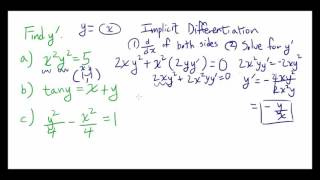 Find y'.
y = (x)
Implicit Differentiation
(1) d/dx of both sides (2) Solve for y'
a) x²y² = 5
2xy² + x²(2yy') = 0
2xy² + 2x²yy' = 0
2x²yy' = -2xy²
y' = -2xy²/2x²y
= -y/x
b) tan y = x + y
c) y²/4 - x²/4 = 1